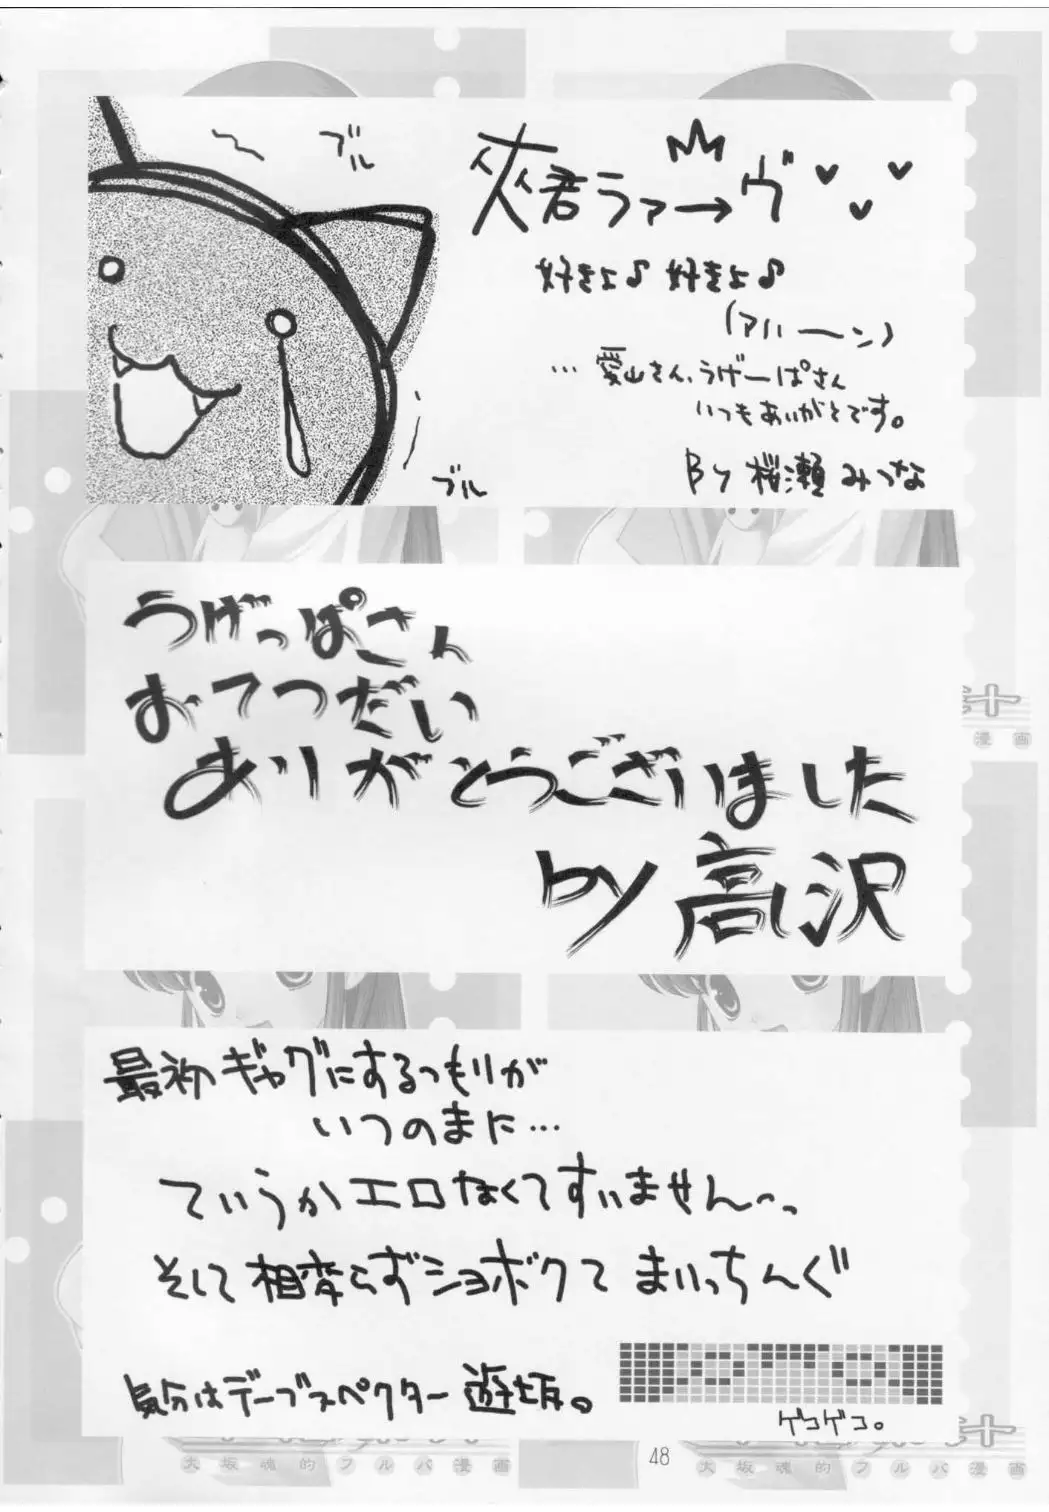 ブル
夾君ラァーヴ
好きよ♪ 好きよ♪
(アハーン)
… 愛山さん、うげーぱさん
いつもありがとです。
By 桜瀬みつな
ブル
うげっぱさん
おてつだい
ありがとうございました
by 高沢
最初ギャグにするつもりが
いつのまに…
ていうかエロなくてすいません〜っ
そして相変らずショボクてまいっちんぐ
気分はデーブスペクター 遊坂。
ゲコゲコ。
漫画
大坂魂的フルパ漫画
48
大坂魂的フルパ漫画